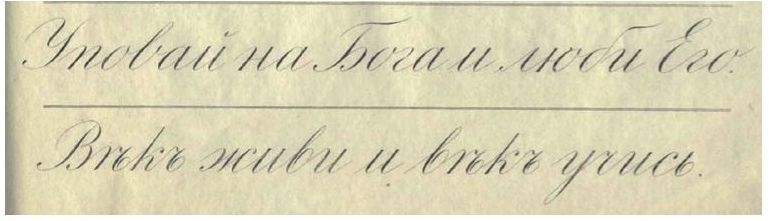 Уповай на Бога и люби Его.
Вѣкъ живи и вѣкъ учись.